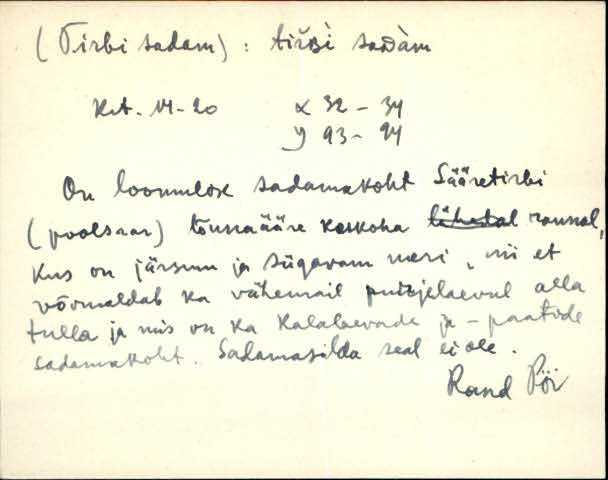 (Tirbi sadam): tirbi sadàm
x 32 - 34
y 93 - 94
On loomulik sadamakoht Sääretirbi
(poolsaar) tõusuääre keskoha lähedal rannal,
kus on järsum ja sügavam meri, nii et
võimaldab ka vähemail purjelaevul alla
tulla ja mis on ka kalalaevade ja -paatide
sadamakoht. Sadamasilda seal ei ole.
Rand Pöi